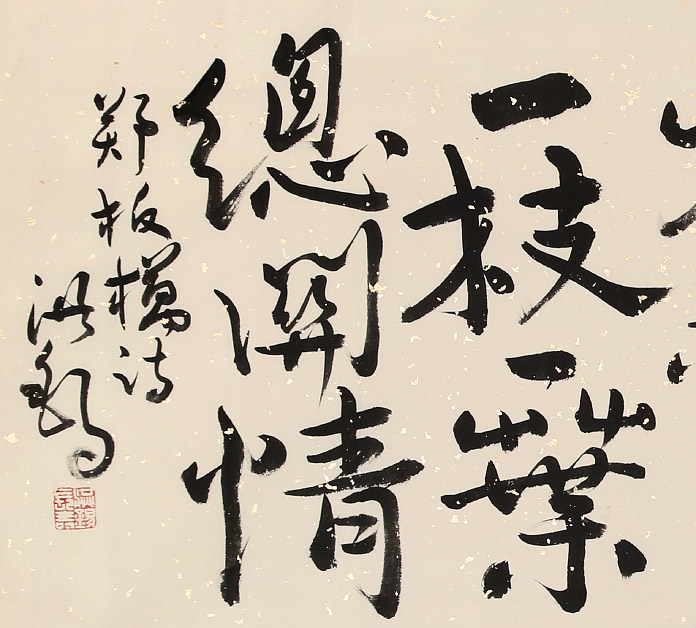 一枝一葉
總關情
郑板橋诗
洪